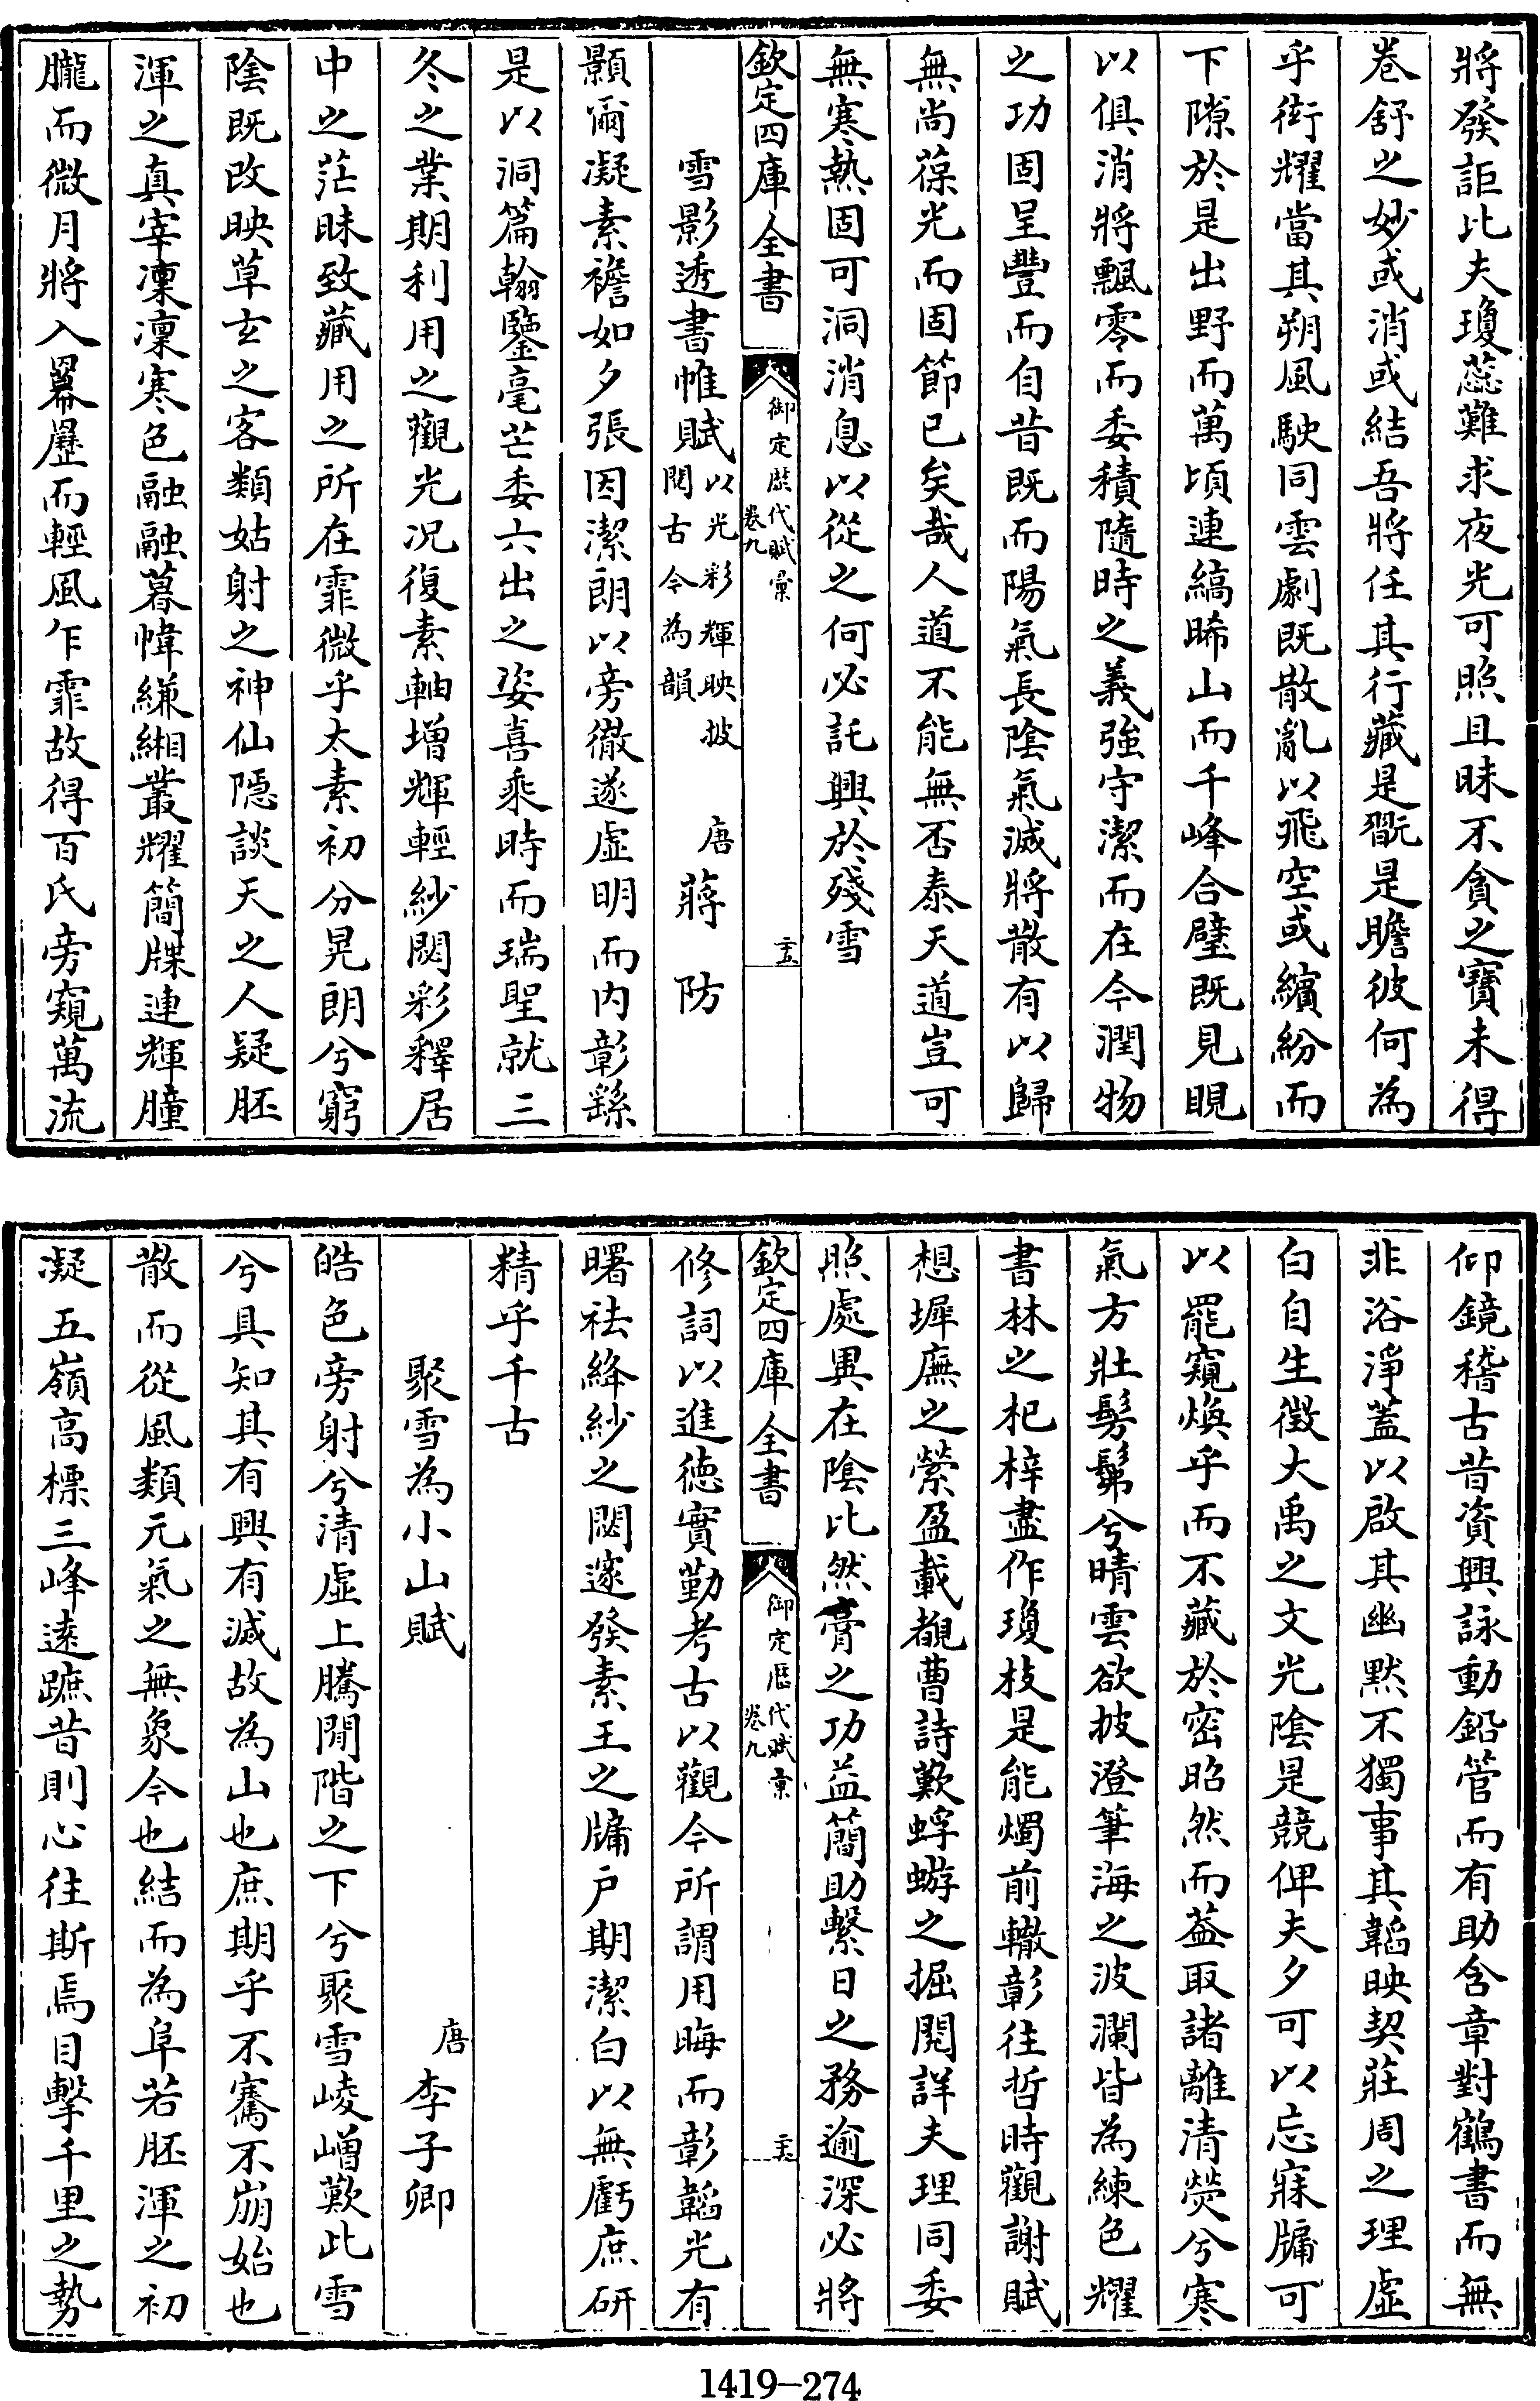 將發詎比夫瓊蕊難求夜光可照且昧不貪之寶未得
卷舒之妙或消或結吾將任其行藏是翫是瞻彼何為
乎衒耀當其朔風駛同雲劇既散亂以飛空或繽紛而
下隙於是出野而萬頃連縞晞山而千峰合璧既見晛
以俱消將飄零而委積隨時之義強守潔而在今潤物
之功固呈豐而自昔既而陽氣長陰氣滅將散有以歸
無尚葆光而固節已矣哉人道不能無否泰天道豈可
無寒熱固可洞消息以從之何必託興於殘雪
欽定四庫全書
御定歷代賦彙
卷九
二十五
雪影透書帷賦以光彩輝映披
閱古今為韻
唐
蔣防
顥爾凝素襜如夕張因潔朗以旁徹遂虛明而內彰繇
是以洞篇翰鑒毫芒委六出之姿喜乘時而瑞聖就三
冬之業期利用之觀光況復素軸增輝輕紗閟彩釋居
中之茫昧致藏用之所在霏微乎太素初分晃朗兮窮
陰既改映草玄之客類姑射之神仙隱談天之人疑胚
渾之真宰凜凜寒色融融暮幃縑緗叢耀簡牒連輝朣
朧而微月將入羃歷而輕風乍霏故得百氏旁窺萬流
仰鏡稽古昔資興詠動鉛管而有助含章對鶴書而無
非浴淨蓋以啟其幽默不獨事其韜映契莊周之理虛
白自生徵大禹之文光陰是競俾夫夕可以忘寐牖可
以罷窺煥乎而不藏於密昭然而蓋取諸離清熒兮寒
氣方壯髣髴兮晴雲欲披澄筆海之波瀾皆為練色耀
書林之杞梓盡作瓊枝是能燭前轍彰往哲時觀謝賦
想墀廡之縈盈載覩曹詩歎蜉蝣之掘閱詳夫理同委
照處異在陰比然膏之功益簡助繫日之務逾深必將
欽定四庫全書
御定歷代賦彙
卷九
二十六
修詞以進德實勤考古以觀今所謂用晦而彰韜光有
曙祛絳紗之閟邃發素王之牖戶期潔白以無虧庶研
精乎千古
聚雪為小山賦
唐
李子卿
皓色旁射兮清虛上騰閒階之下兮聚雪崚嶒歎此雪
兮具知其有興有減故為山也庶期乎不騫不崩始也
散而從風類元氣之無象今也結而為阜若胚渾之初
凝五嶺高標三峰遠蹠昔則心往斯焉目擊千里之勢
1419-274